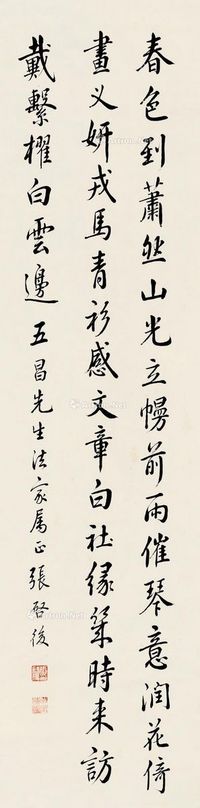 春色到蕭然山光立幌前雨催琴意潤花倚
畫义妍戎馬青衫感文章白社緣筑時来訪
戴繫櫂白雲邊 五昌先生法家属正 張啓後